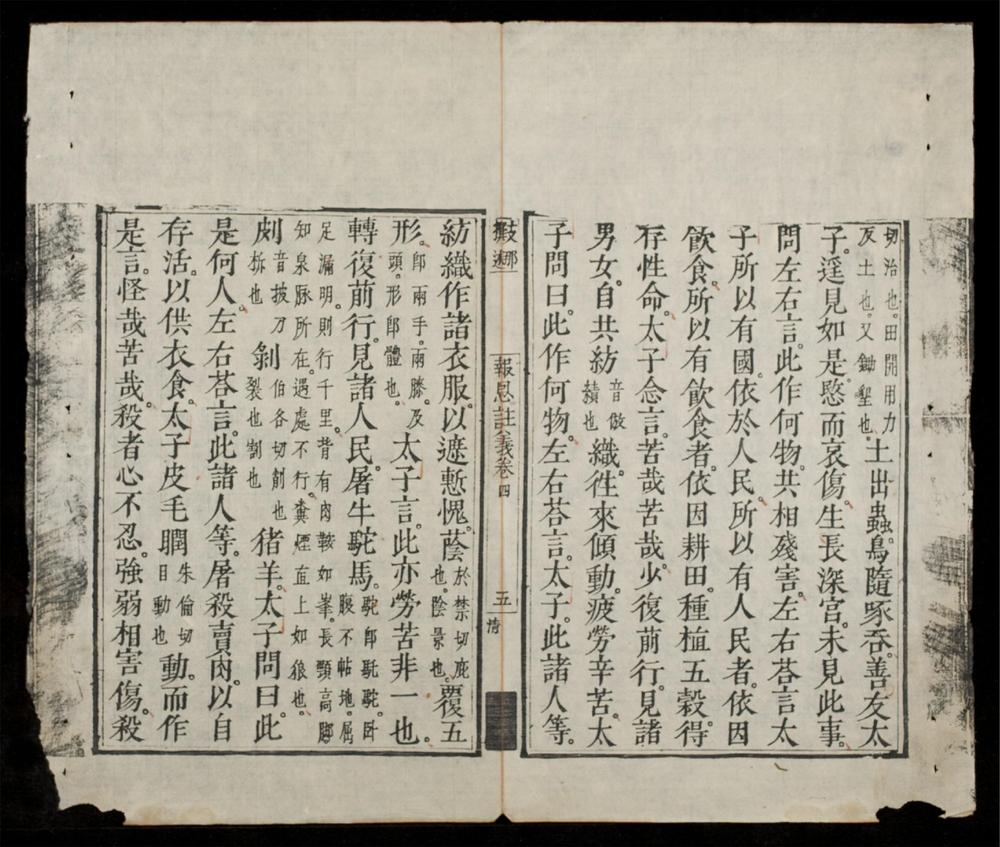 切治也。田開用力反土也。又鋤墾也。土出蟲。鳥隨啄吞。善友太
子。遥見如是。愍而哀傷。生長深宮。未見此事。
問左右言。此作何物。共相殘害。左右荅言。太
子所以有國。依於人民。所以有人民者。依因
飲食。所以有飲食者。依因耕田。種植五穀。得
存性命。太子念言。苦哉苦哉。少復前行。見諸
男女。自共紡音倣績也織。徃來傾動。疲勞辛苦。太
子問曰。此作何物。左右荅言。太子。此諸人等。
報恩註
義卷四
五
紡織作諸衣服。以遮慙愧。蔭於禁切庇也。陰景也。覆五
形。即兩手。兩膝。及頭。形即體也。太子言。此亦勞苦非一也。
轉復前行。見諸人民。屠牛駝馬。駝即馲駝。臥腹不帖地。屈
足漏明。則行千里。背有肉鞍如峯。長頸高脚
知泉脉所在。遇處不行。糞煙直上如狼也。
剫音披刀析也剝伯各切割也裂也割也猪羊。太子問曰。此
是何人。左右荅言。此諸人等。屠殺賣肉。以自
存活。以供衣食。太子皮毛瞤朱倫切目動也動。而作
是言。怪哉苦哉。殺者心不忍。強弱相害傷。殺